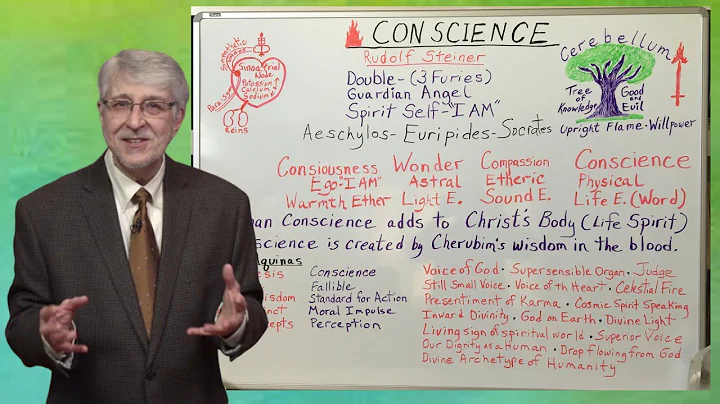 CONSCIENCE
Rudolf Steiner
Double-(3 Furies)
Guardian Angel
Spirit Self-"I AM"
Aeschylos-Euripides-Socrates
Sympathetic
Sinoatrial
Node
Potassium
Calcium
Sodium
Parasym
Reins
Cerebellum
Tree of Knowledge
Good and Evil
Upright Flame-Willpower
Consiousness Wonder Compassion Conscience
Ego-"I AM" Astral Etheric Physical
Warmth Ether Light E. Sound E. Life E. (Word)
an Conscience adds to Christ's Body (Life Spirit)
science is created by Cherubim's wisdom in the blood.
quinas
esis Conscience
Fallible
isdom Standard for Action
nct Moral Impulse
cepts Perception
Voice of God · Supersensible Organ · Judge
Still Small Voice · Voice of th Heart · Celestial Fire
Presentiment of Karma · Cosmic Spirit Speaking
Inward Divinity · God on Earth · Divine Light
Living sign of spiritval world · Superior Voice
Our Dignity as a Human · Drop flowing from God
Divine Archetype of Humanity